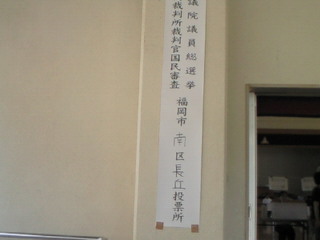 議院議員総選挙
裁判所裁判官国民審査
福岡市 南区長丘投票所